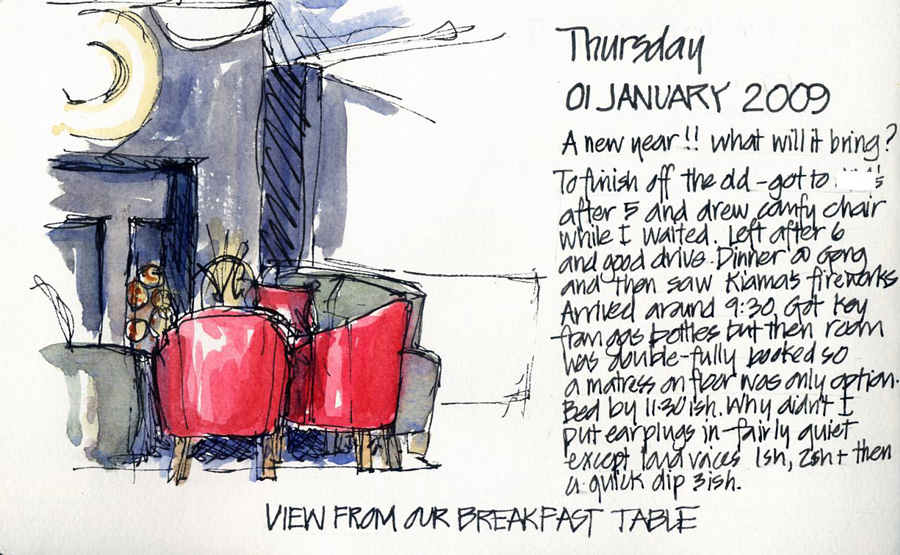 Thursday
01 JANUARY 2009
A new year!! What will it bring?
To finish off the old - got to
after 5 and drew comfy chair
while I waited. Left after 6
and good drive. Dinner @ Gong
and then saw Kiama's fireworks
Arrived around 9:30. Got key
from gas bottles but then room
was double-fully booked so
a matress on floor was only option.
Bed by 11:30ish. Why didn't I
put earplugs in - fairly quiet
except loud voices 1sh, 2sh + then
a quick dip 3ish.
VIEW FROM OUR BREAKFAST TABLE